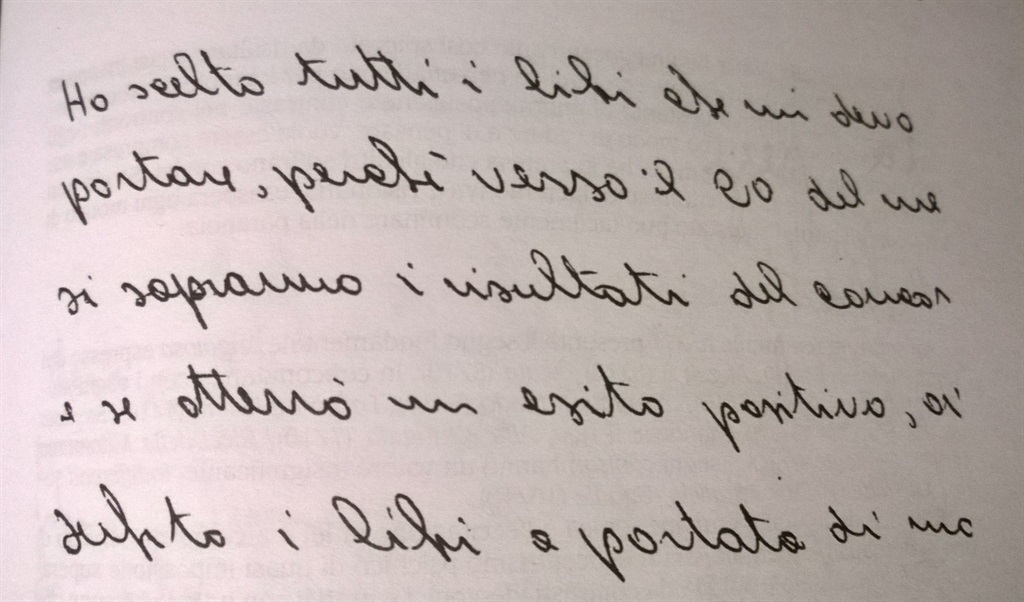 Ho scelto tutti i libri che mi devo
portare, perché verso il 20 del me
si sapranno i risultati del concor
e se otterrò un esito positivo, a
subito i libri a portata di ma